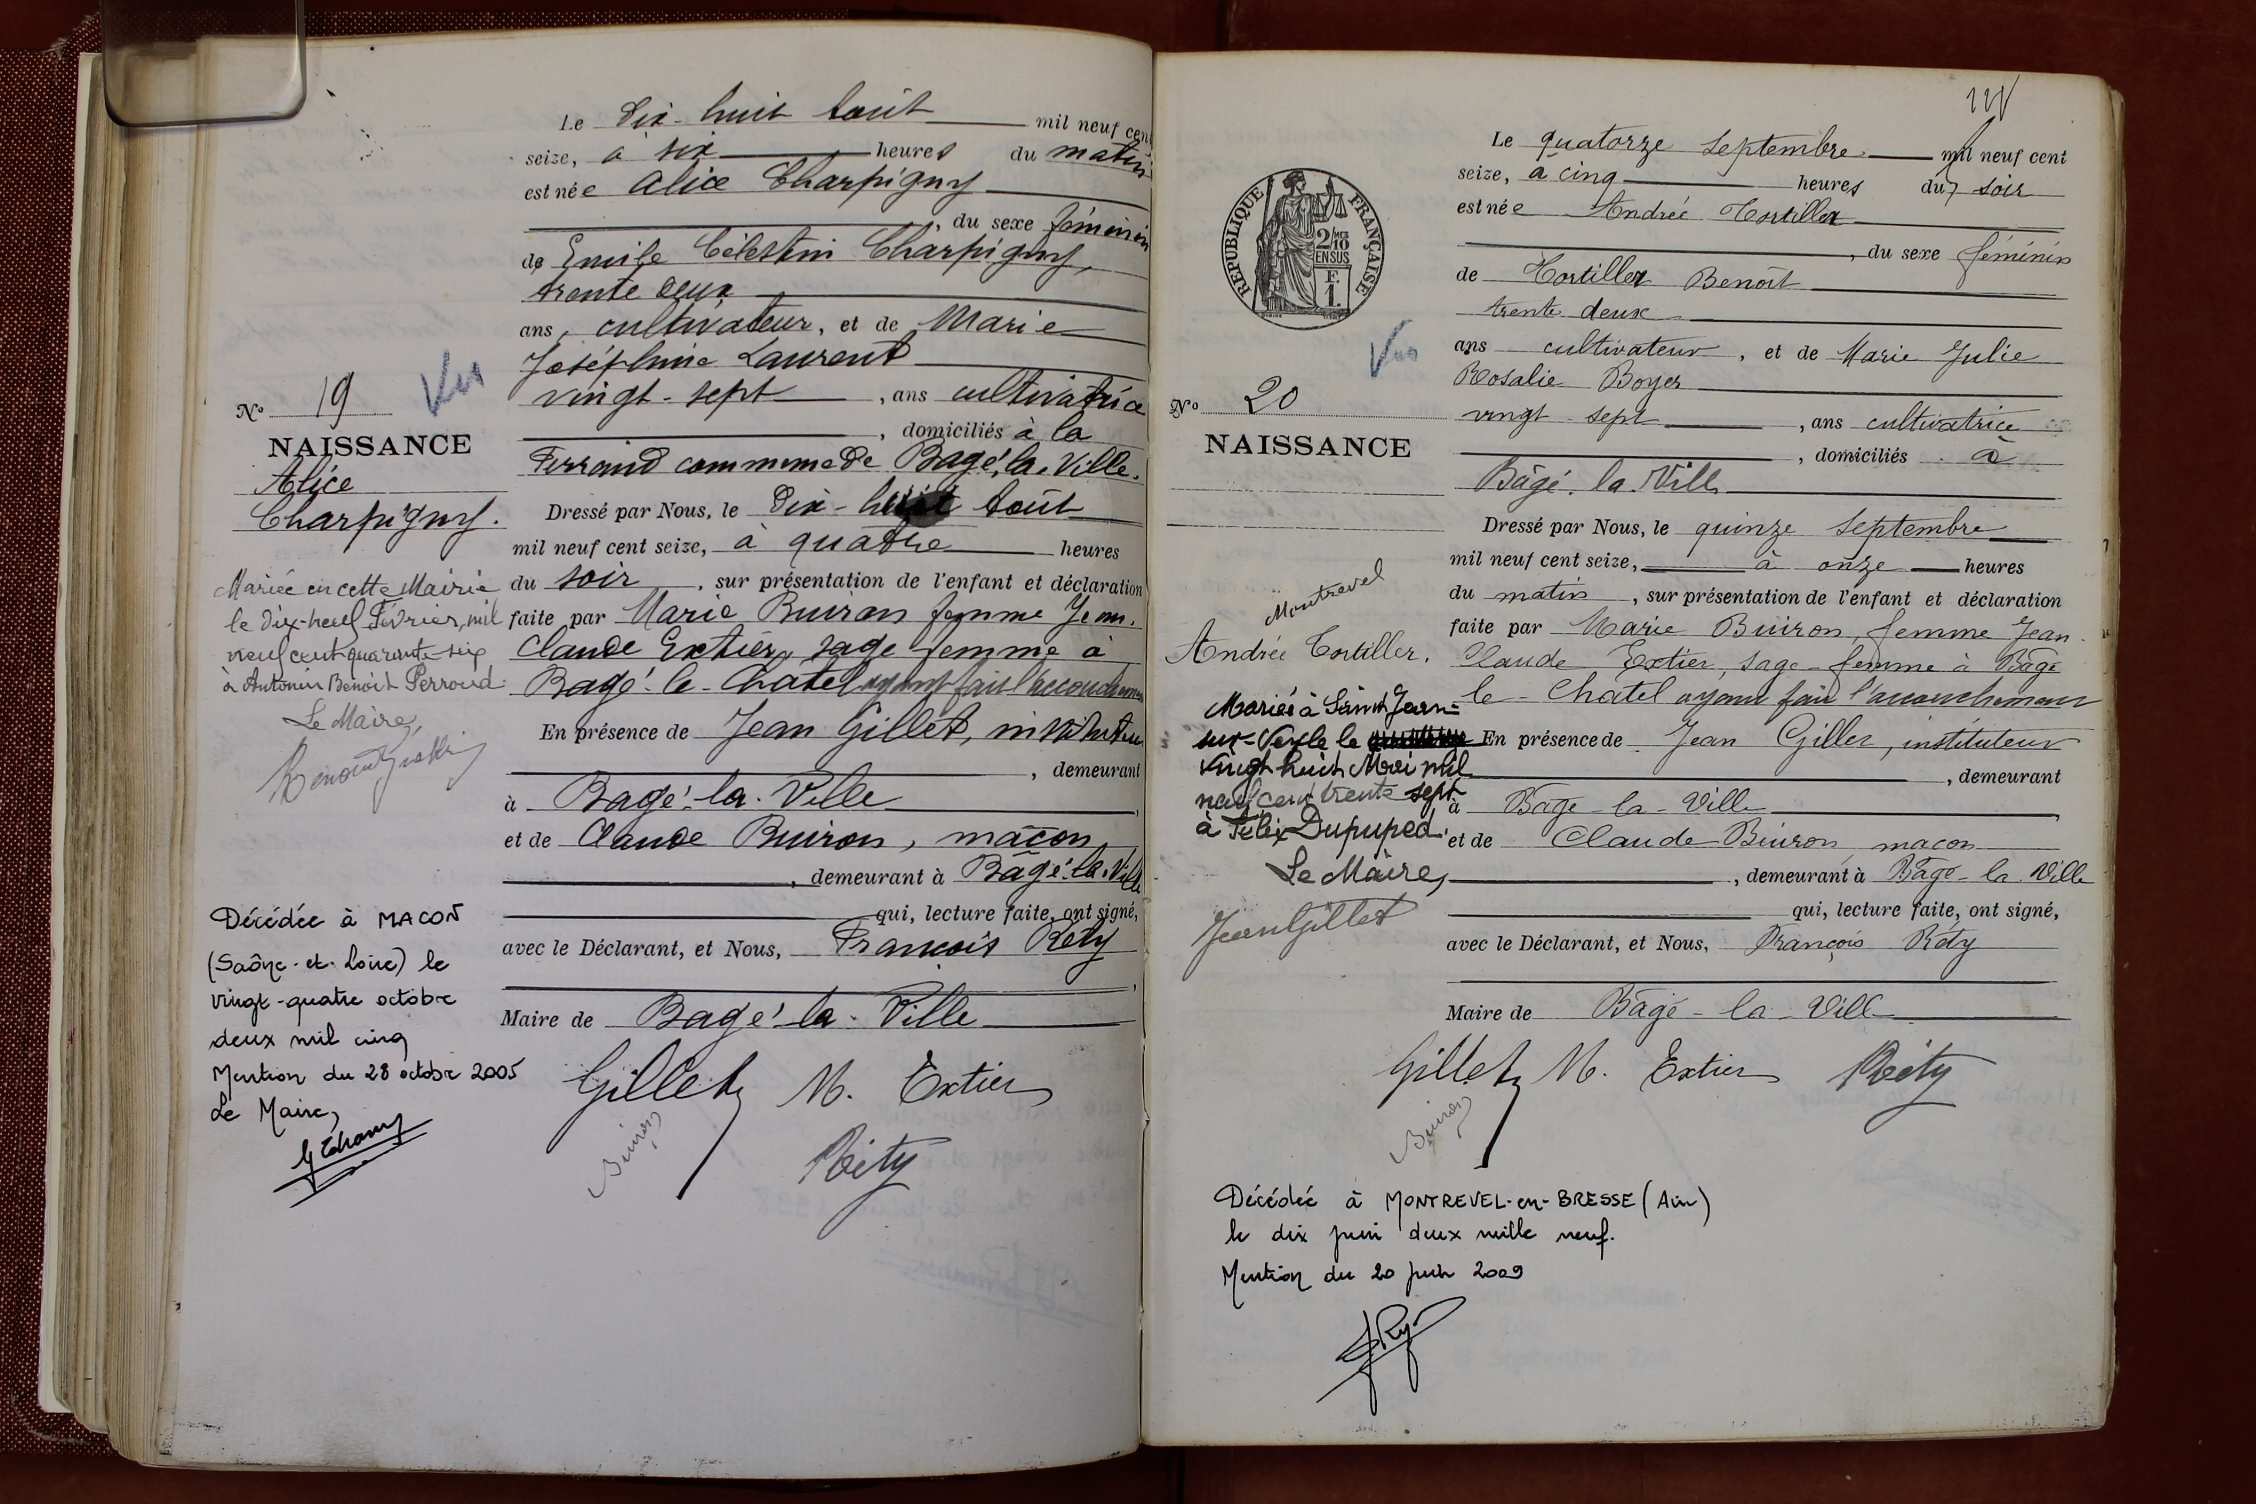 Le Dix-huit Août mil neuf cent
seize, à six heures du matin
est née Alice Charpigny
, du sexe féminin
de Emile Célestin Charpigny,
trente deux
ans, cultivateur, et de Marie
Joséphine Laurent
vingt-sept , ans cultivatrice
, domiciliés à la
Perroud commune de Bagé-la-Ville.
Dressé par Nous, le Dix-huit Août
mil neuf cent seize, à quatre heures
du soir , sur présentation de l'enfant et déclaration
faite par Marie Buiron femme Jean-
Claude Extier, sage femme à
Bagé-le-Châtel ayant fait l'accouchement
En présence de Jean Gillet, instituteur
, demeurant
à Bagé-la-Ville
et de Claude Buiron, maçon
, demeurant à Bâgé-la-Ville
qui, lecture faite, ont signé,
avec le Déclarant, et Nous, François Réty
Maire de Bagé-la-Ville
Gillet M. Extier
Buiron
Réty
Nº 19
Vu
NAISSANCE
Alice
Charpigny.
Mariée en cette Mairie
le dix-neuf Février, mil
neuf cent quarante six
à Antonin Benoît Perroud.
Le Maire,
Décédée à MACON
(Saône-et-Loire) le
vingt-quatre octobre
deux mil cinq
Mention du 28 octobre 2005
Le Maire,
Le quatorze Septembre mil neuf cent
seize, à cinq heures du soir
est née Andrée Tortiller
, du sexe féminin
de Tortiller Benoît
trente deux
ans cultivateur , et de Marie Julie
Rosalie Boyer
vingt sept , ans cultivatrice
, domiciliés à
Bâgé-la-Ville
Dressé par Nous, le quinze Septembre
mil neuf cent seize, à onze heures
du matin , sur présentation de l'enfant et déclaration
faite par Marie Buiron, femme Jean-
Claude Extier, sage-femme à Bâgé
le-Châtel ayant fait l'accouchement
En présence de Jean Gillet, instituteur
, demeurant
à Bâgé-la-Ville
et de Claude Buiron maçon
, demeurant à Bâgé-la-Ville
qui, lecture faite, ont signé,
avec le Déclarant, et Nous, François Réty
Maire de Bâgé-la-Ville
Gillet M. Extier Réty
Buiron
RÉPUBLIQUE FRANÇAISE
2/10
EN SUS
F.
1.
Vu
Nº 20
NAISSANCE
Montrevel
Andrée Tortiller.
Mariée à Saint Jean-
sur-Veyle le
vingt huit Mai mil
neuf cent trente sept
à Félix Dupuped.
Le Maire,
Jean Gillet
Décédée à MONTREVEL-en-BRESSE (Ain)
le dix juin deux mille neuf.
Mention du 20 juin 2009